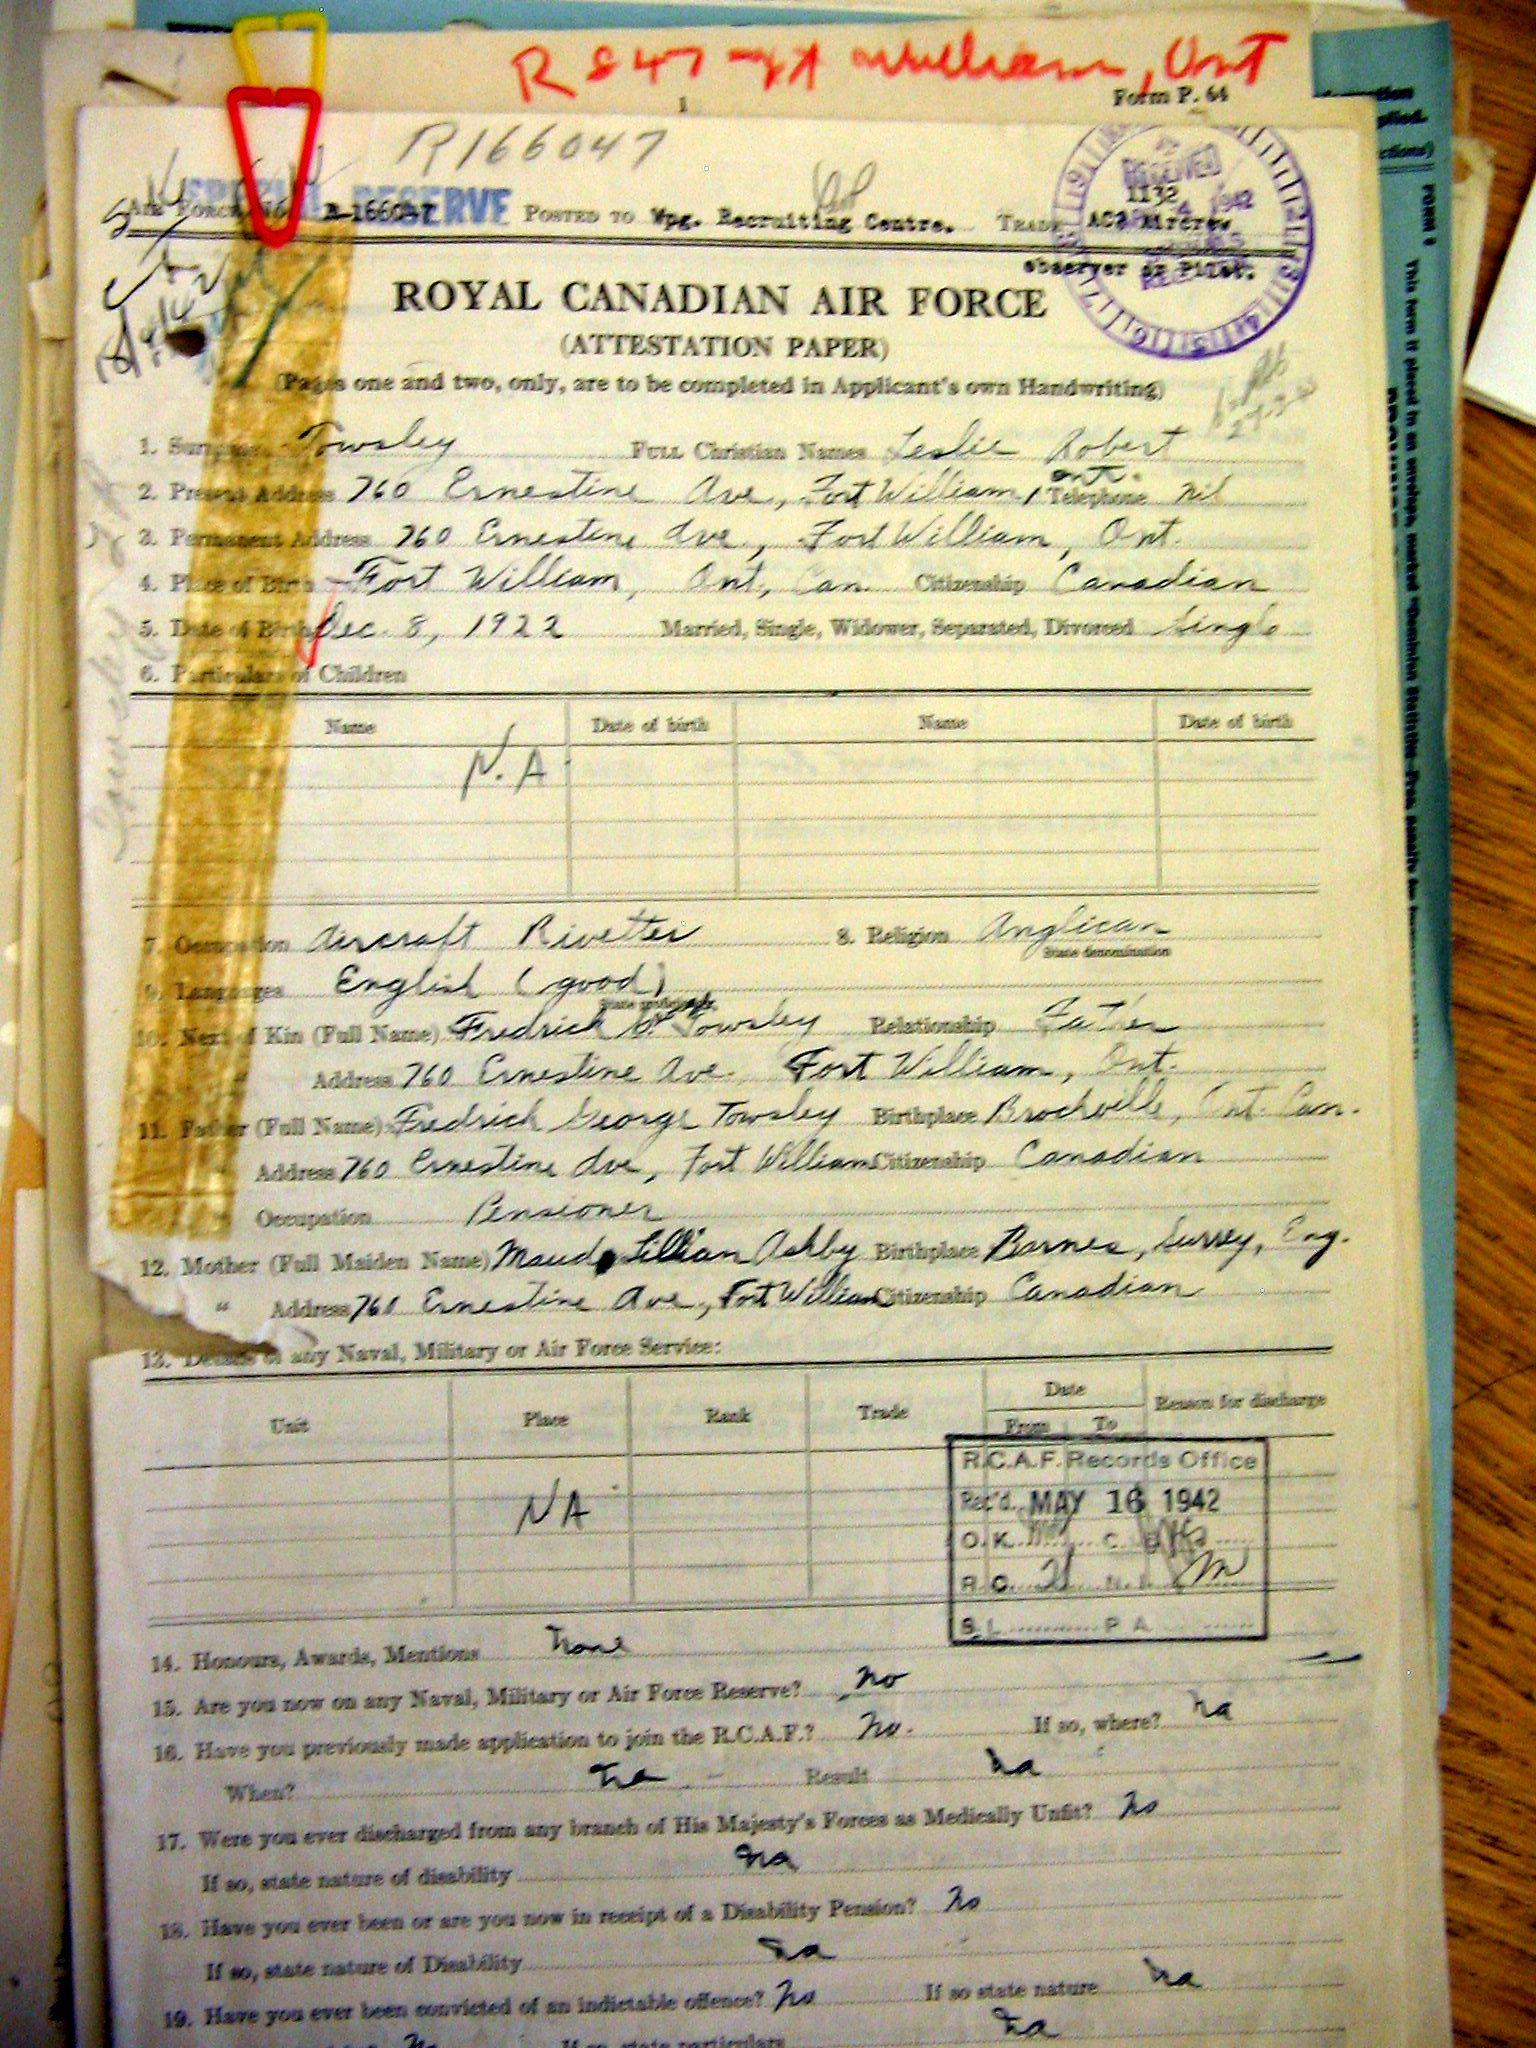 Ft William, Ont
1
Form P. 64
R166047
SPECIAL RESERVE
AIR FORCE No. R-166047 POSTED TO Wpg. Recruiting Centre. TRADE AC2 Aircrew
1132
RECEIVED
1942
observer or Pilot.
ROYAL CANADIAN AIR FORCE
(ATTESTATION PAPER)
(Pages one and two, only, are to be completed in Applicant's own Handwriting)
1. Surname Towsley FULL Christian Names Leslie Robert
2. Present Address 760 Ernestine Ave, Fort William, Ont. Telephone nil
3. Permanent Address 760 Ernestine Ave, Fort William, Ont.
4. Place of Birth Fort William, Ont, Can. Citizenship Canadian
5. Date of Birth Dec. 8, 1922 Married, Single, Widower, Separated, Divorced Single
6. Particulars of Children
Name Date of birth Name Date of birth
N.A.
7. Occupation Aircraft Rivetter 8. Religion Anglican
State denomination
9. Languages English (good)
10. Next of Kin (Full Name) Fredrick G. Towsley Relationship Father
Address 760 Ernestine Ave. Fort William, Ont.
11. Father (Full Name) Fredrick George Towsley Birthplace Brockville, Ont. Can.
" Address 760 Ernestine Ave, Fort William Citizenship Canadian
" Occupation Pensioner
12. Mother (Full Maiden Name) Maude Lillian Ashby Birthplace Barnes, Surrey, Eng.
" Address 760 Ernestine Ave, Fort William Citizenship Canadian
13. Details of any Naval, Military or Air Force Service:
Unit Place Rank Trade Date From To Reason for discharge
NA
R.C.A.F. Records Office
Rec'd. MAY 16 1942
O.K. C.
R.C. N.I.
S.L. P.A.
14. Honours, Awards, Mentions none
15. Are you now on any Naval, Military or Air Force Reserve? no
16. Have you previously made application to join the R.C.A.F.? no. If so, where? na
When? na Result na
17. Were you ever discharged from any branch of His Majesty's Forces as Medically Unfit? no
If so, state nature of disability na
18. Have you ever been or are you now in receipt of a Disability Pension? no
If so, state nature of Disability na
19. Have you ever been convicted of an indictable offence? no If so state nature na
no If so, state particulars na
FORM